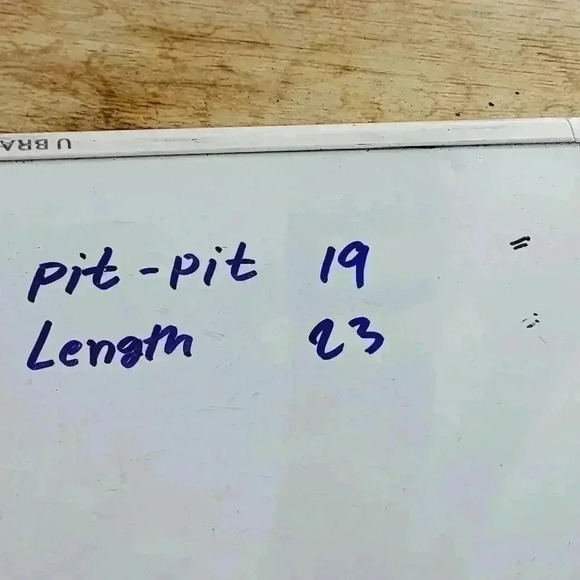 UBRA
pit-pit 19
Length 23